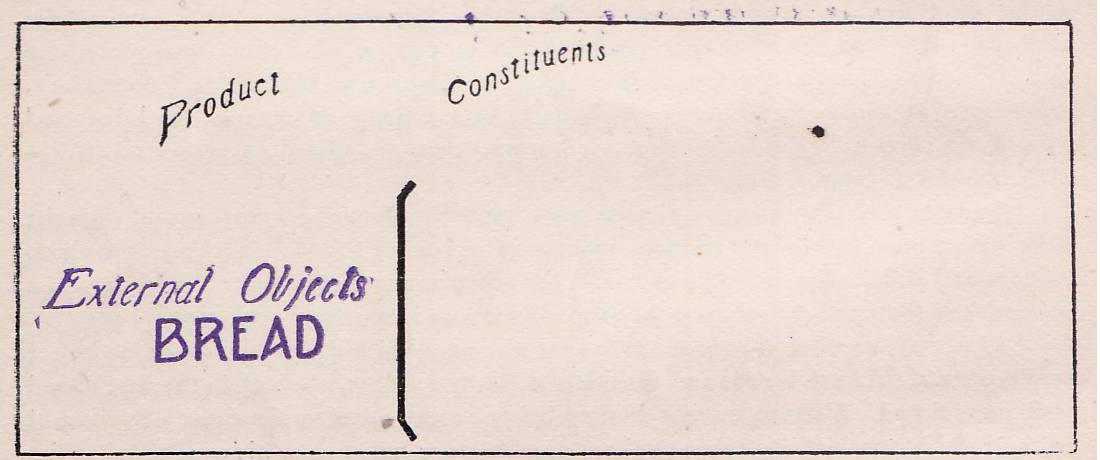 Product Constituents
External Objects
BREAD